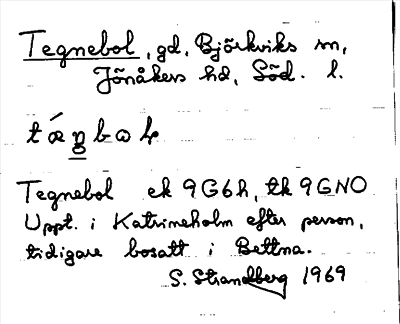 Tegnebol, gd, Björkviks sn,
Jönåkers hd, Söd. l.
Tegnebol ek 9G6h, tk 9GNO
Uppt. i Katrineholm efter person,
tidigare bosatt i Bettna.
S. Strandberg 1969